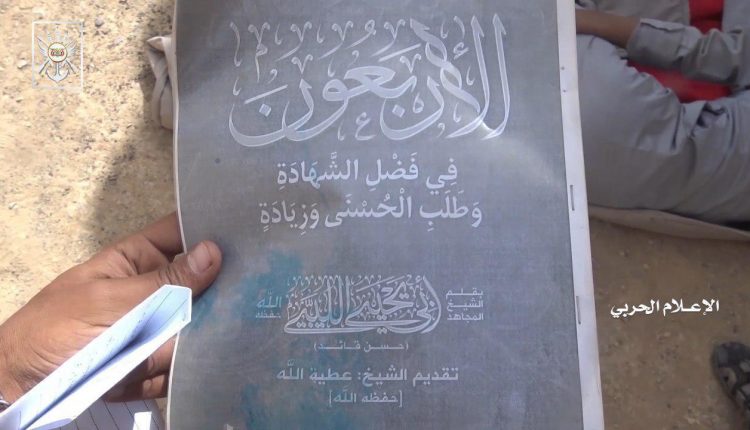 الأربعون
فِي فَضْلِ الشَّهَادَةِ
وَطَلَبِ الْحُسْنَى وَزِيَادَةٍ
بقلم
الشيخ
المجاهد
أبي يحيى الليبي
حفظه
الله
(حسن قائد)
تقديم الشيخ: عطية الله
[حفظه الله]
الإعلام الحربي